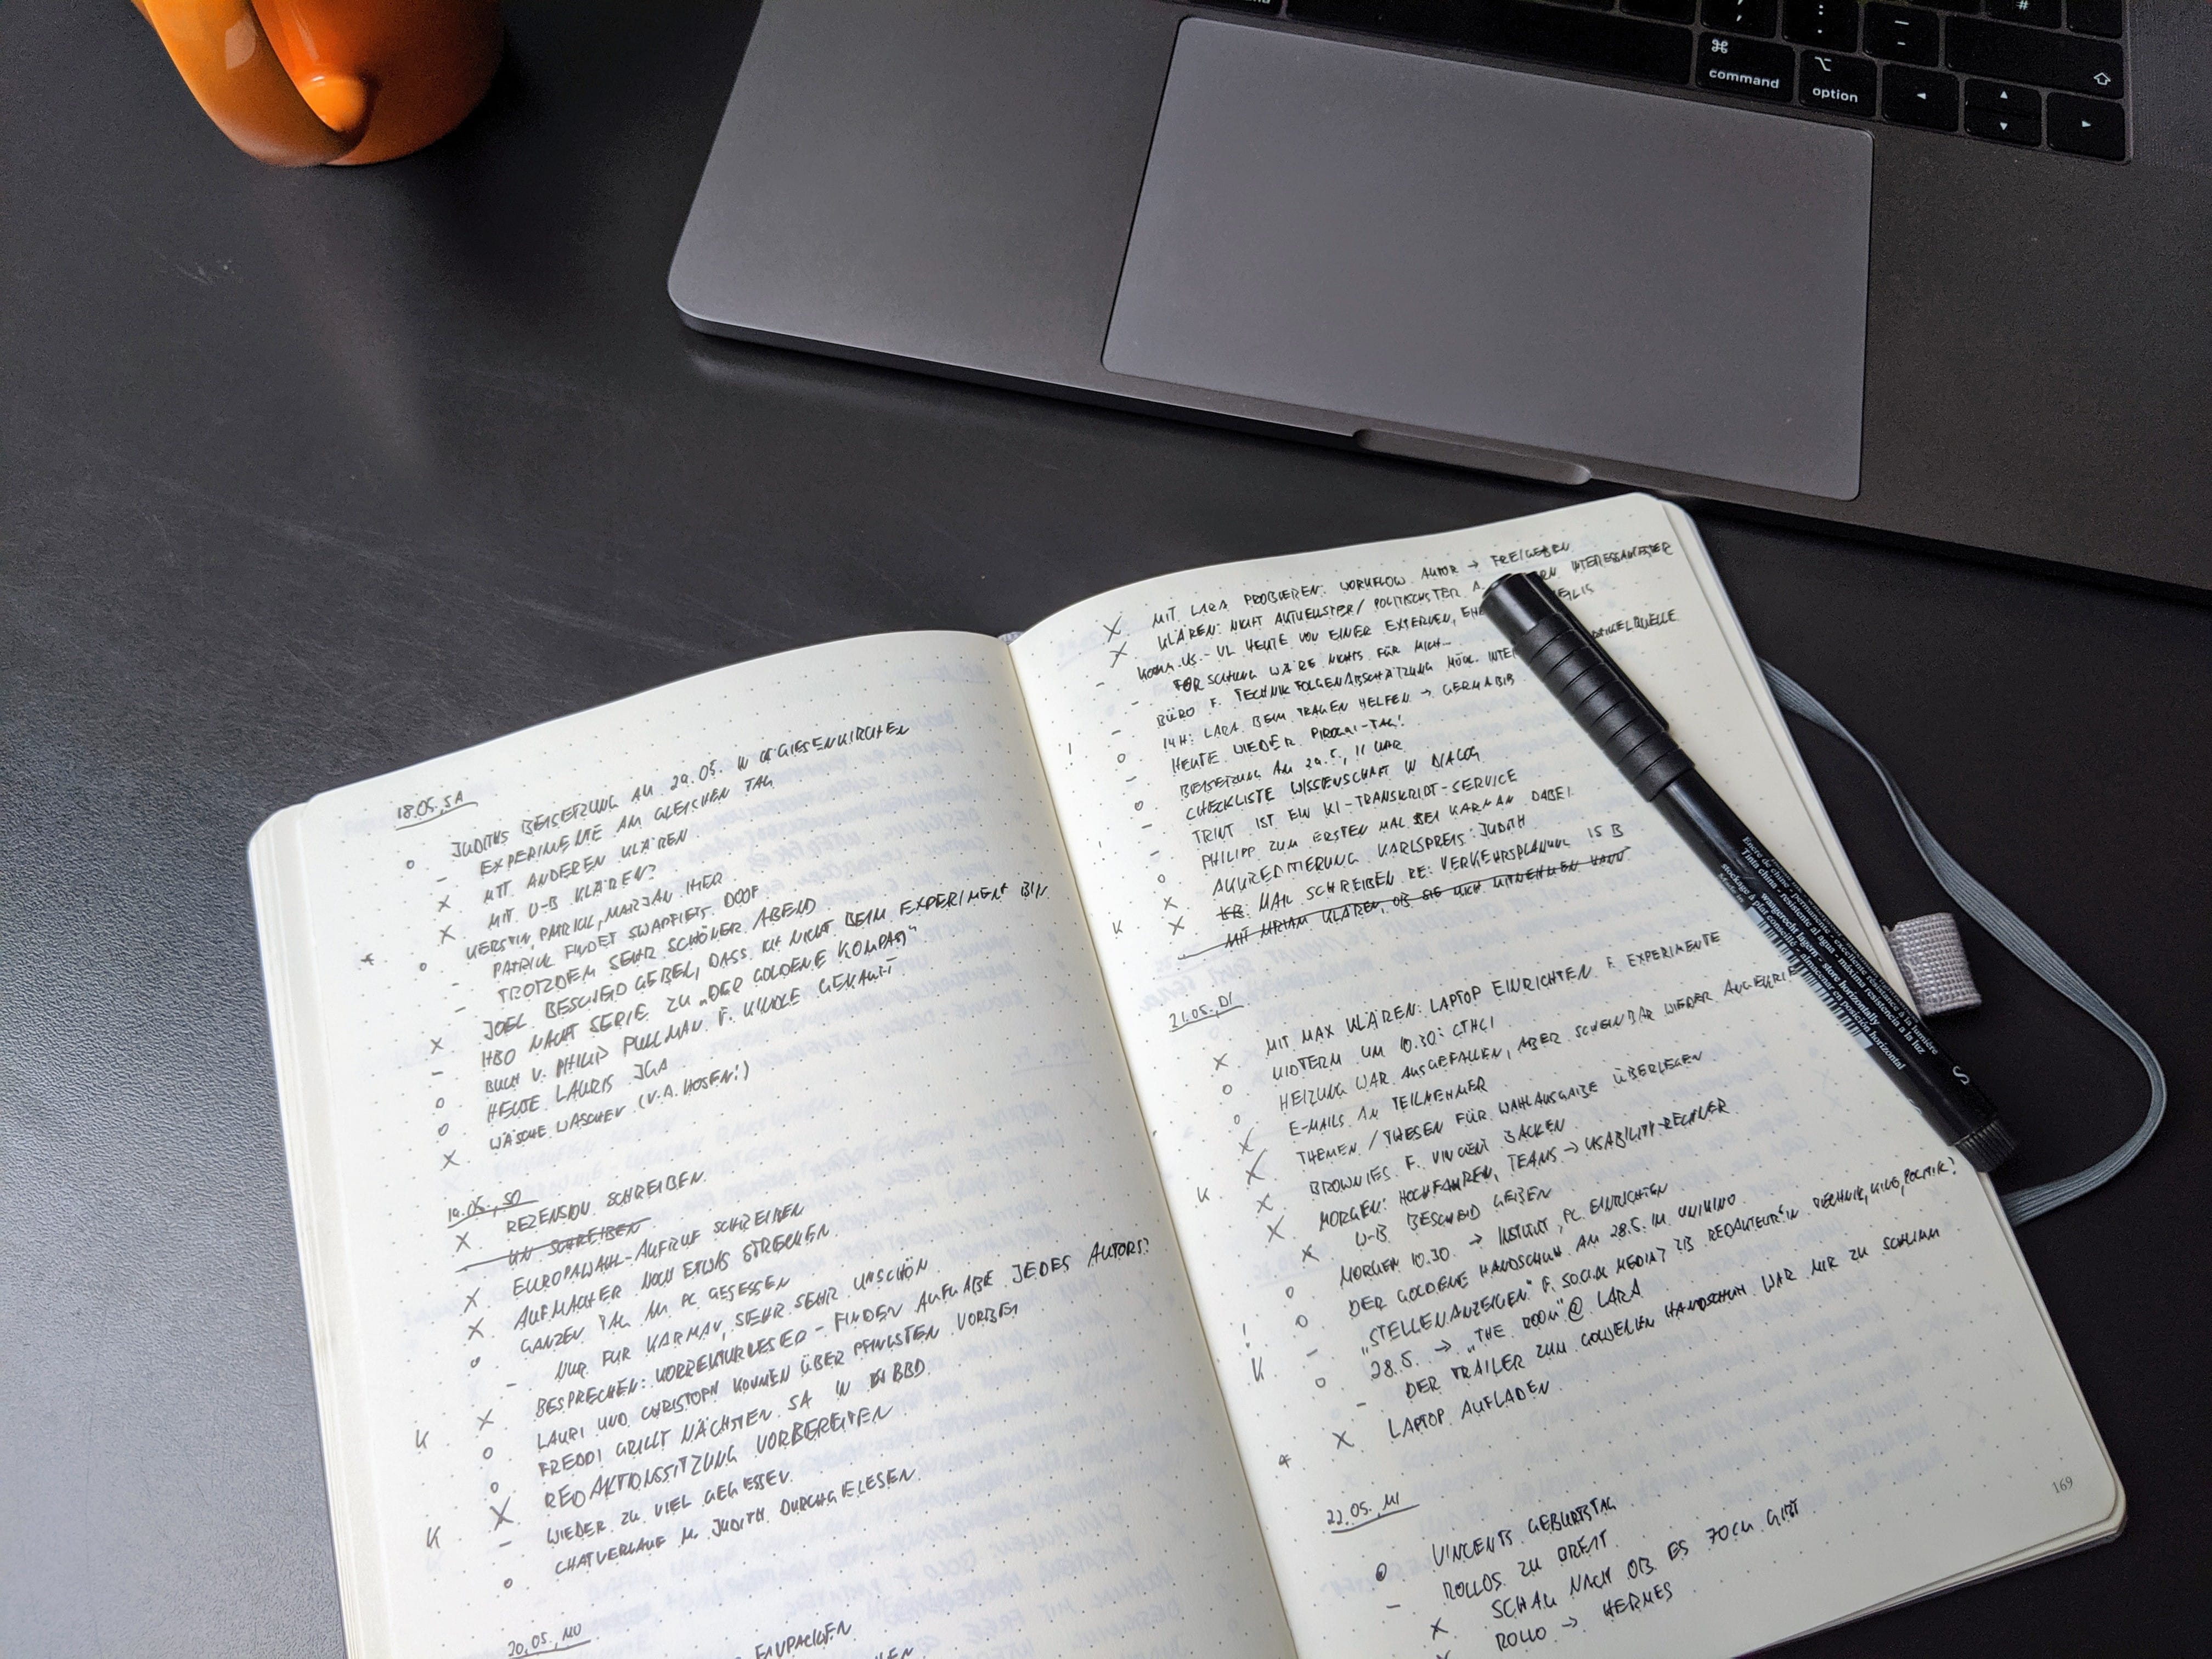 ⌘
command
⌥
option
18.05., SA
JUDITHS BEISETZUNG AM 29.05. IN GIESENKIRCHEN
EXPERIMENTE AM GLEICHEN TAG
MIT ANDEREN KLÄREN
MIT U-B KLÄREN?
KERSTIN, PATRICK, MARJAN HIER
PATRICK FINDET SWAPFIETS DOOF
TROTZDEM SEHR SCHÖNER ABEND
JOEL BESCHEID GEBEN, DASS ICH NICHT BEIM EXPERIMENT BIN
HBO MACHT SERIE ZU „DER GOLDENE KOMPASS“
BUCH V. PHILIP PULLMAN F. KINDLE GEKAUFT
HEUTE LAURIS JGA
WÄSCHE WASCHEN (V.A. HOSEN!)
19.05., SO
REZENSION SCHREIBEN
UN SCHREIBEN
EUROPAWAHL-AUFRUF SCHREIBEN
AUFMACHER NOCH ETWAS STRECKEN
GANZEN TAG AM PC GESESSEN
NUR FÜR KARMAN, SEHR SEHR UNSCHÖN
BESPRECHEN: KORREKTURLESEN - FINDEN AUFGABE JEDES AUTORS?
LAURI UND CHRISTOPH KOMMEN ÜBER PFINGSTEN VORBEI
FREDDI GRILLT NÄCHSTEN SA IN BBD
REDAKTIONSSITZUNG VORBEREITEN
WIEDER ZU VIEL GEGESSEN
CHATVERLAUF M. JUDITH DURCHGELESEN
20.05., MO
EINPACKEN
MIT LARA PROBIEREN: WORKFLOW AUTOR → FREIGEBEN
KLÄREN: NICHT AKTUELLSTER/ POLITISCHSTER INTERESSANTESTER
KOMM.US.-VL HEUTE VON EINER EXTERNEN,
FORSCHUNG WÄRE NICHTS FÜR MICH...
BÜRO F. TECHNIKFOLGENABSCHÄTZUNG MÖGL. ARTIKELQUELLE
14H: LARA BEIM TRAGEN HELFEN → GERMABIB
HEUTE WIEDER PIROGGI-TAG!
BEISETZUNG AM 29.5., 11 UHR
CHECKLISTE WISSENSCHAFT IM DIALOG
TRINT IST EIN KI-TRANSKRIPT-SERVICE
PHILIPP ZUM ERSTEN MAL BEI KARMAN DABEI
AKKREDITIERUNG KARLSPREIS: JUDITH
MAIL SCHREIBEN RE: VERKEHRSPLANUNG IS B
MIT MIRIAM KLÄREN, OB SIE MICH MITNEHMEN KANN
21.05., DI
MIT MAX KLÄREN: LAPTOP EINRICHTEN F. EXPERIMENTE
MIDTERM UM 10.30: CTHCI
HEIZUNG WAR AUSGEFALLEN, ABER SCHEINBAR WIEDER
E-MAILS AN TEILNEHMER
THEMEN / THESEN FÜR WAHLAUSGABE ÜBERLEGEN
BROWNIES F. VINCENT BACKEN
MORGEN: HOCHFAHREN, TEAMS → USABILITY-RECHNER
U-B BESCHEID GEBEN
MORGEN 10.30 → INSTITUT, PC EINRICHTEN
DER GOLDENE HANDSCHUH AM 28.5. IM UNIKINO
„STELLENANZEIGEN“ F. SOCIAL MEDIA? ZB REDAKTEUR*IN TECHNIK, KINO, POLITIK?
28.5. → „THE ROOM“ @ LARA
DER TRAILER ZUM GOLDENEN HANDSCHUH WAR MIR ZU SCHLIMM
LAPTOP AUFLADEN
22.05., MI
VINCENTS GEBURTSTAG
ROLLOS ZU BREIT
SCHAU NACH OB ES 70CM GIBT
ROLLO → HERMES
169